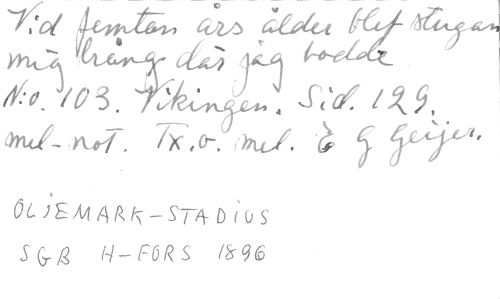 Vid femton års ålder blef stugan
mig trång där jag bodde
N:o. 103. Vikingen. Sid. 129.
mel-not. Tx. o. mel. E G Geijer.
OLJEMARK-STADIUS
SGB H-FORS 1896